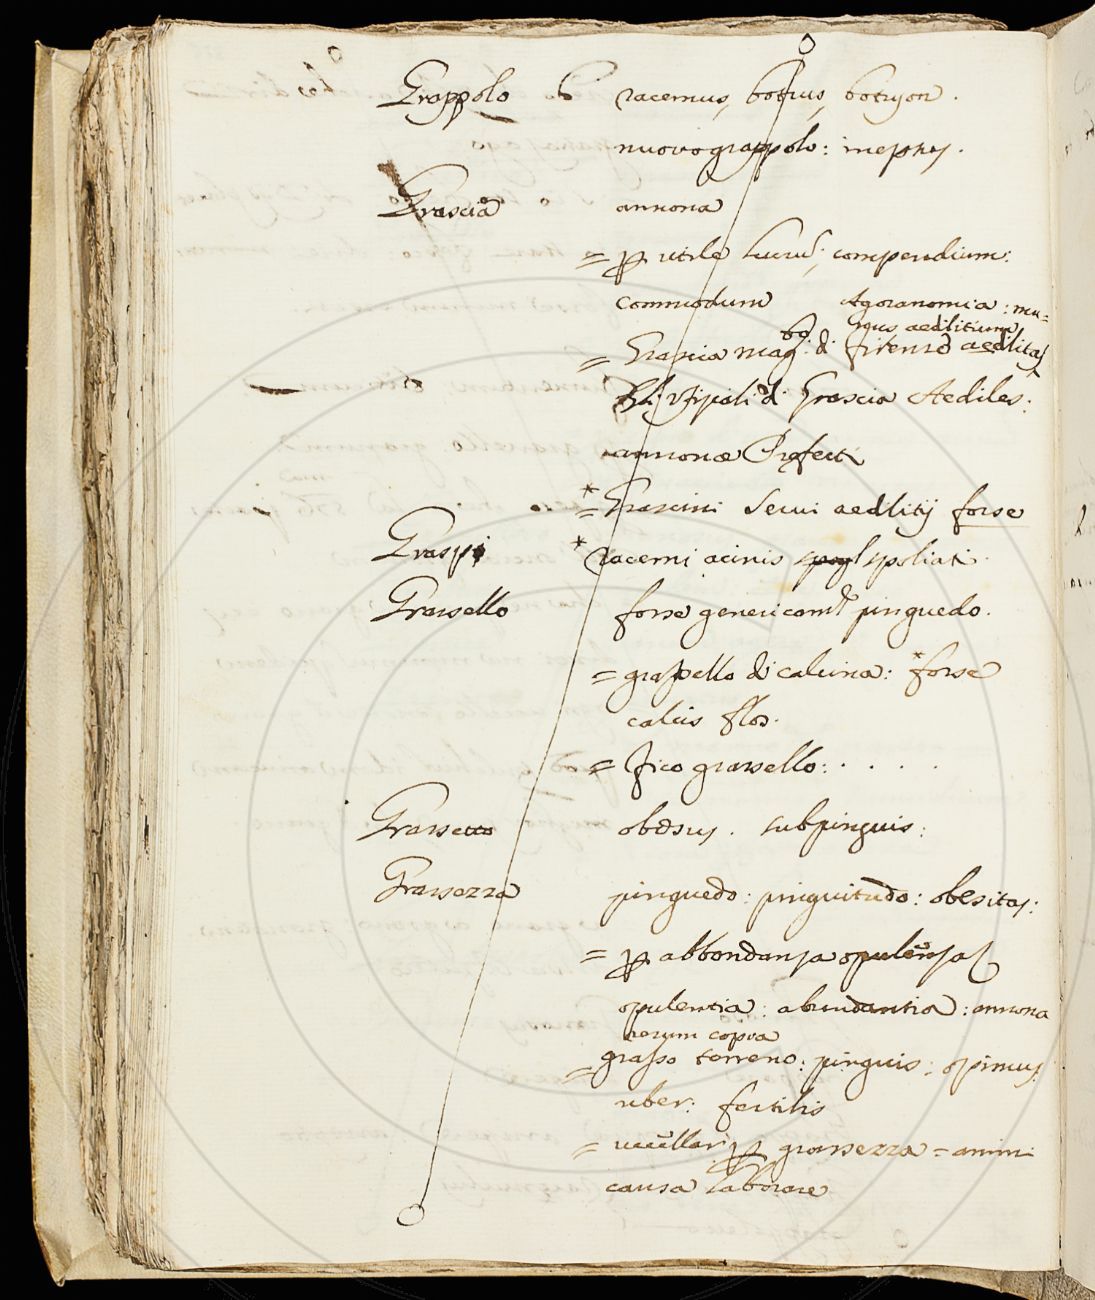 Grappolo racemus, botrus, botryon.
nuovo grappolo:
Grascia annona
= p utile lucrũ, compendium:
commodum Agoranomia: mu=
nus aedilitium
= Grascia mag. di Firenze aedilitas
di Grascia Aediles:
annonæ Præfecti
* = Grascini Servi aedilitij forse
Graspi * racemi acinis spoliati.
Grassello forse genericamte pinguedo.
= grassello di calcina: * forse
calcis flos.
= fico grassello: . . . .
Grassetto obesus. subpinguis:
Grassezza pinguedo: pinguitudo: obesitas:
= p abbondanza opulenza
opulentia: abundantia: annona
rerum copia
= grasso terreno: pinguis: opimus:
uber: fertilis
= uccellar p grassezza = animi
causa laborare